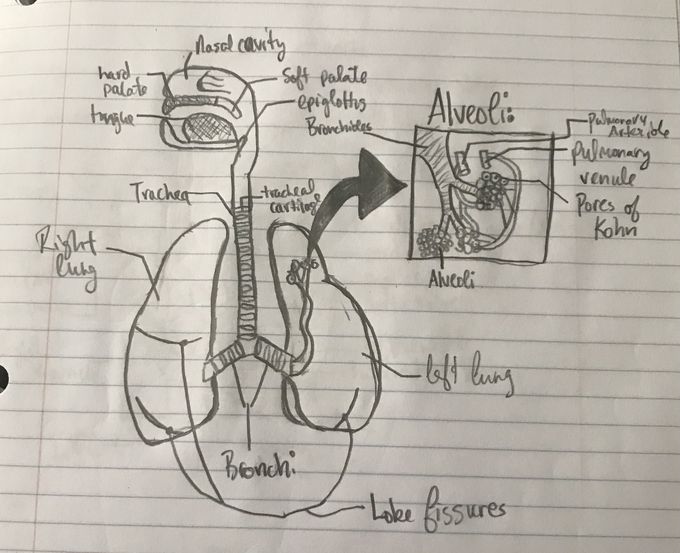 Nasal cavity
hard
palate
Soft palate
tongue
epiglottis
Bronchioles
Alveoli:
Pulmonary
Arteriole
pulmonary
venule
Pores of
Kohn
Alveoli
Trachea
tracheal
cartilage
Right
lung
left lung
Bronchi
Lobe fissures